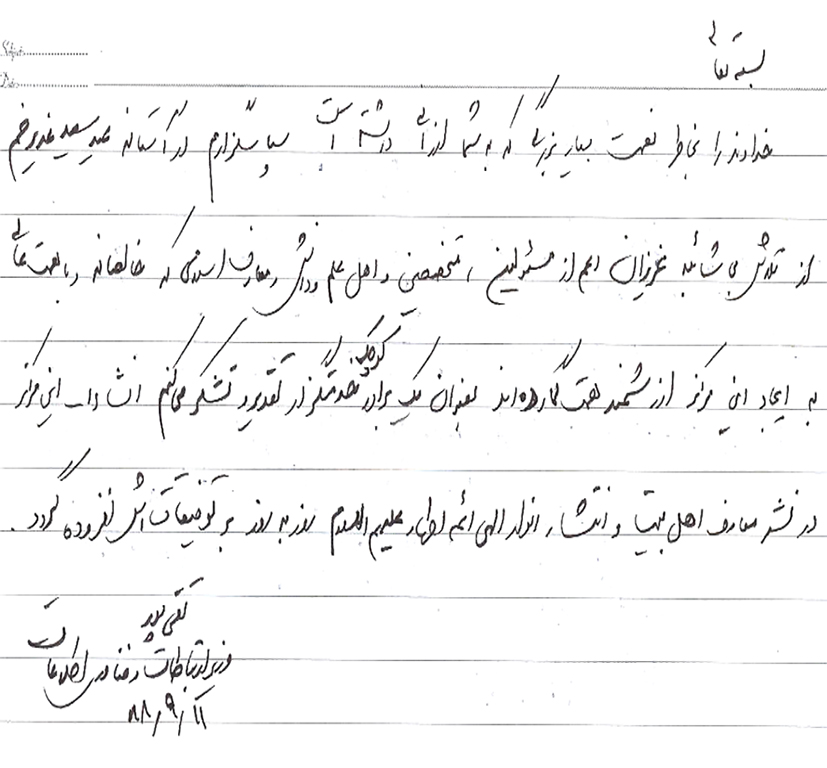 بسمه تعالی
Subject
Date
خداوند را بخاطر نعمت بسیار بزرگی که به شما ارزانی داشته است سپاسگزارم و در آستانه عید سعید غدیر خم
از تلاش بی شائبه عزیزان اعم از مسئولین ، متخصصین و اهل علم و دانش و معارف اسلامی که خالصانه و با همت عالی
به ایجاد این مرکز ارزشمند همت گمارده‌اند بعنوان یک برادر کوچک و خدمتگزار تقدیر و تشکر می‌کنم انشاءا... این مرکز
در نشر معارف اهل بیت و انتشار انوار الهی ائمه اطهار علیهم السلام روز به روز بر توفیقات‌اش افزوده گردد .
تقی پور
وزیر ارتباطات و فناوری اطلاعات
۸۸/۹/۱۱